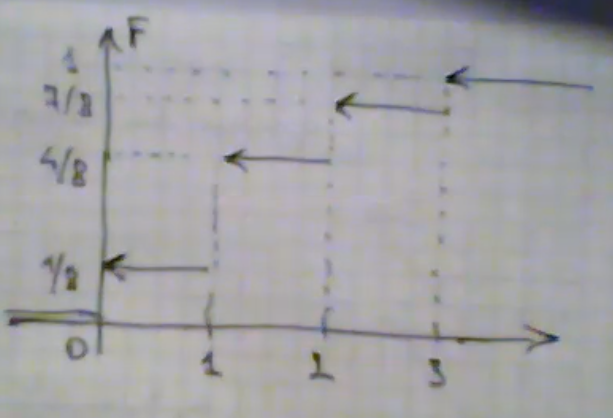 F
1
7/8
4/8
1/8
0 1 2 3